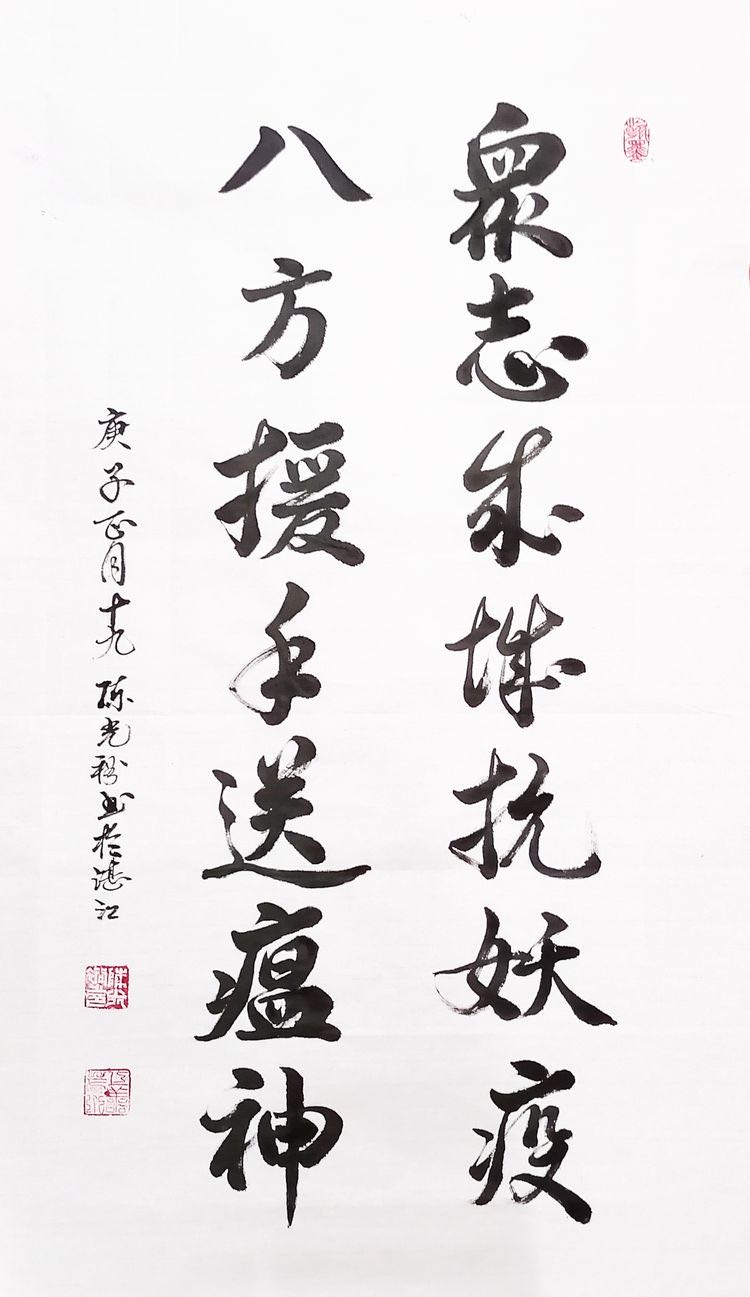 眾志成城抗妖疫
八方援手送瘟神
庚子正月十九 陈光 書於湛江